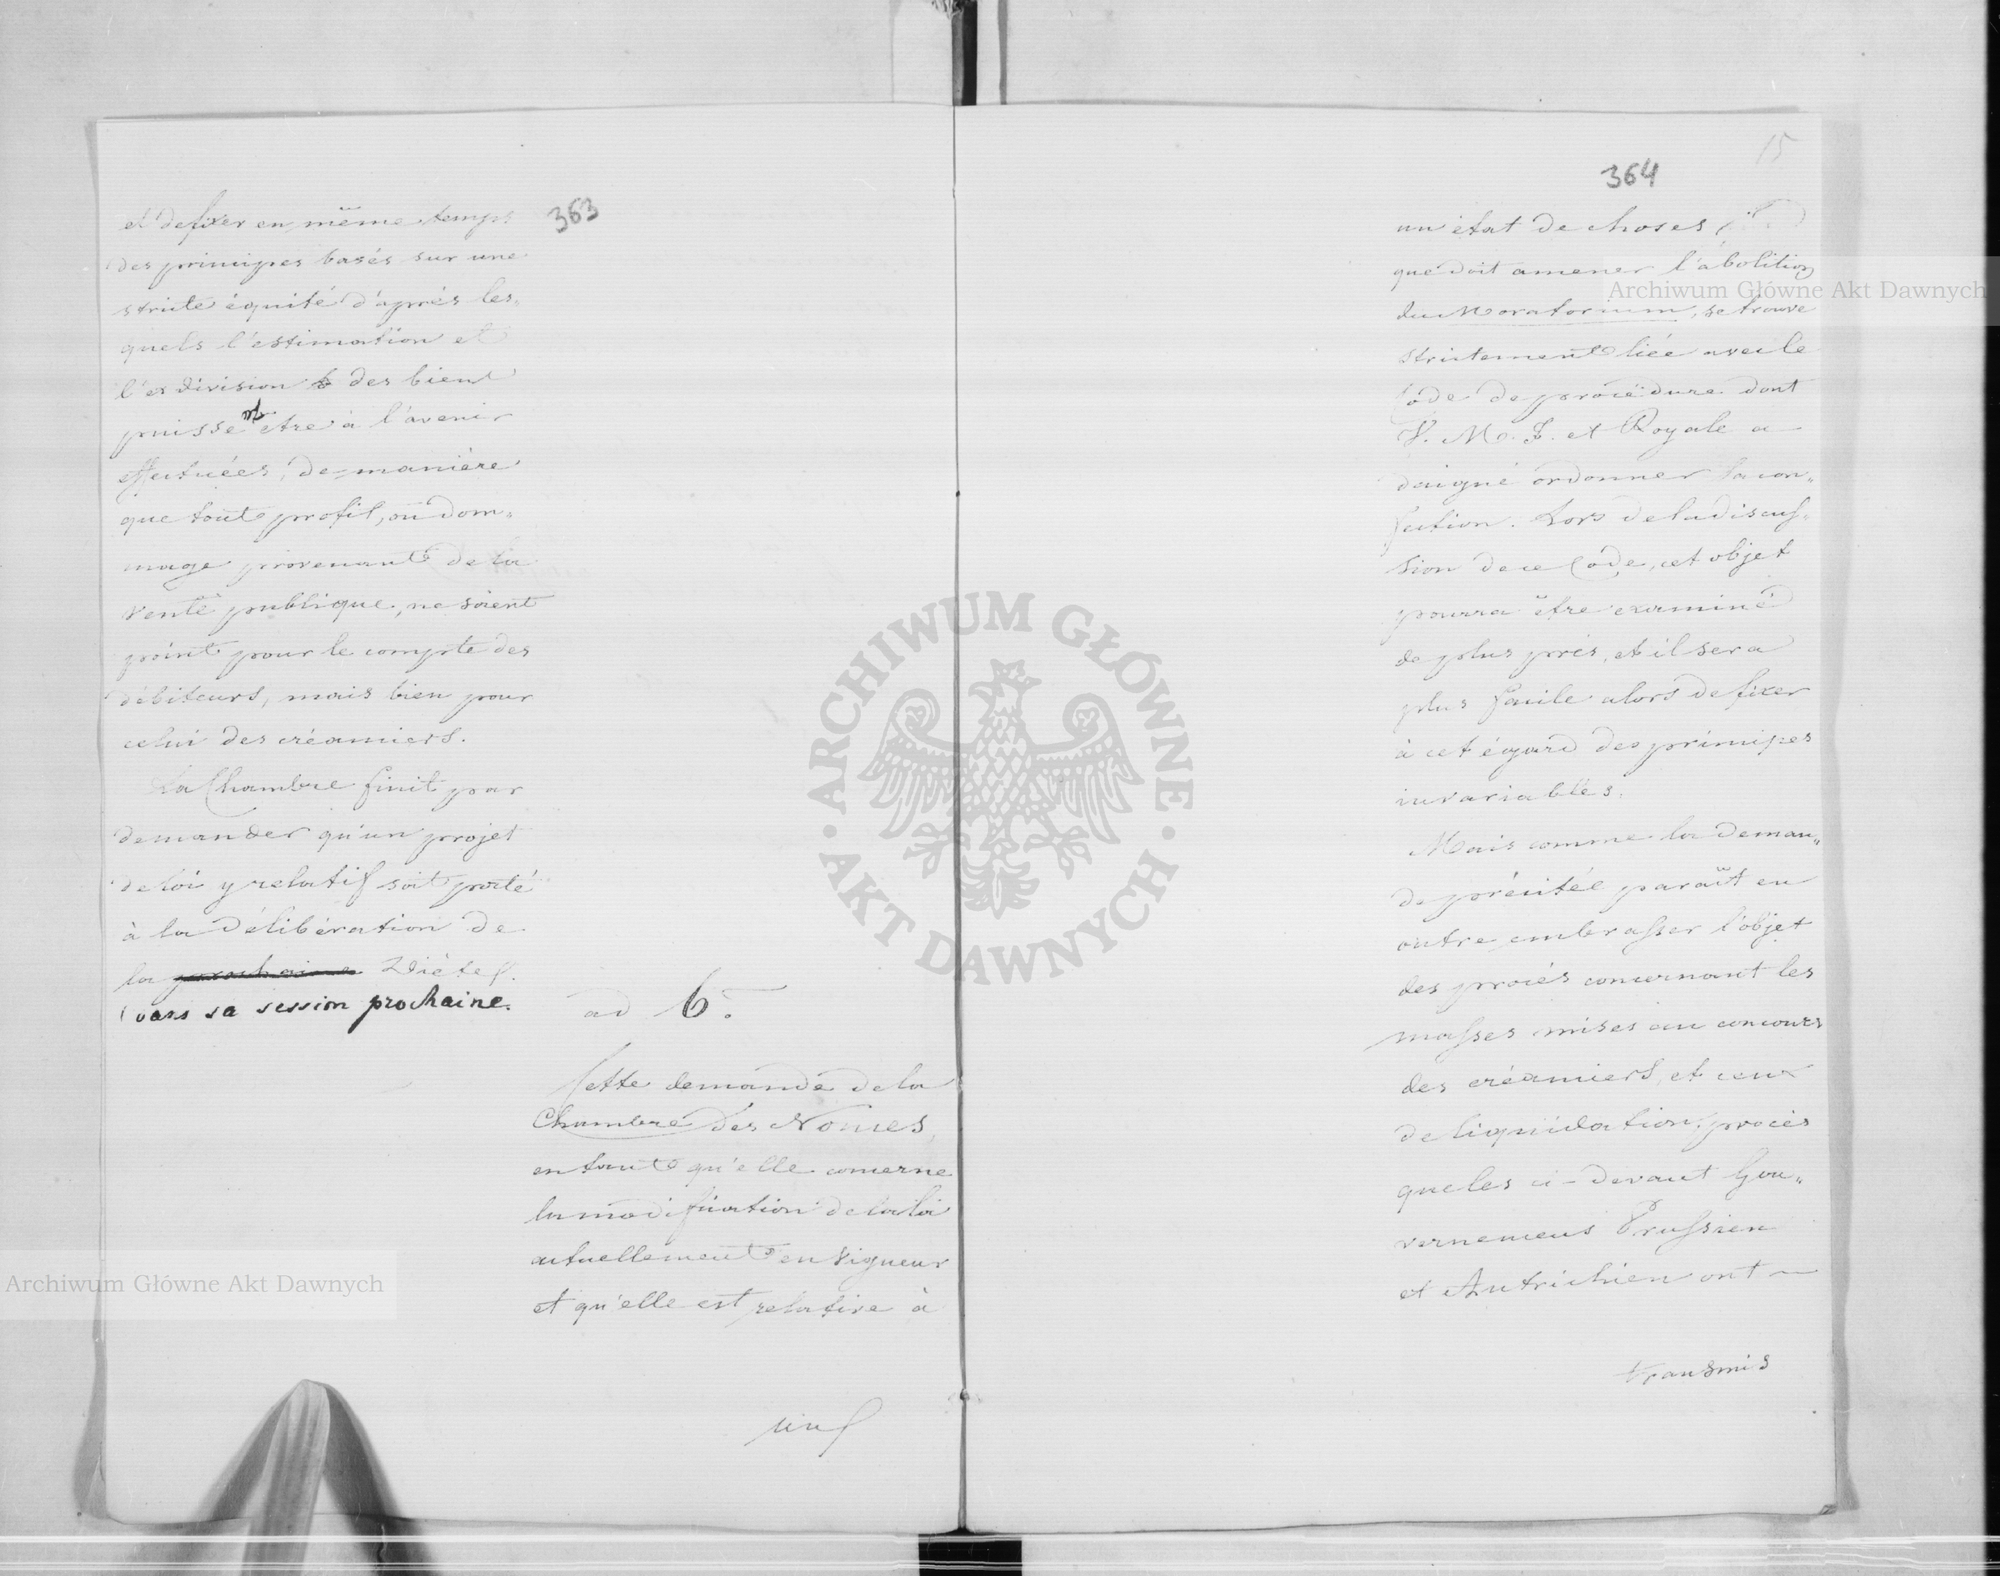 363
et de fixer en même temps
des principes basés sur une
stricte équité d'après les„
quels l'estimation et
l'exdivision des biens
puissent etre à l'avenir
effectuées, de manière
que tout profit, ou dom„
mage provenant de la
vente publique, ne soient
point pour le compte des
débiteurs, mais bien pour
celui des créanciers.
La Chambre finit par
demander qu'un projet
de loi y relatif soit porté
à la délibération de
la prochaine Diète
dans sa session prochaine.
ad 6.
Cette demande de la
Chambre des Nonces,
en tant qu'elle concerne
la modification de la loi
actuellement en vigueur
et qu'elle est relative à
un
15
364
un état de choses
que doit amener l'abolition
du Moratorium, se trouve
strictement liée avec le
Code de procèdure dont
V. M. I. et Royale a
daigné ordonner la con„
fection. Lors de la discus„
sion de ce Code, cet objet
pourra être examiné
de plus près, et il sera
plus facile alors de fixer
à cet égard des principes
invariables.
Mais comme la deman„
de précitée paraît en
outre embrasser l'objet
des procès concernant les
masses mises au concours
des créanciers, et ceux
de liquidation, procès
que les ci-devant Gou„
vernemens Prussien
et Autrichien ont
transmis
Archiwum Główne Akt Dawnych
Archiwum Główne Akt Dawnych
ARCHIWUM GŁÓWNE
AKT DAWNYCH